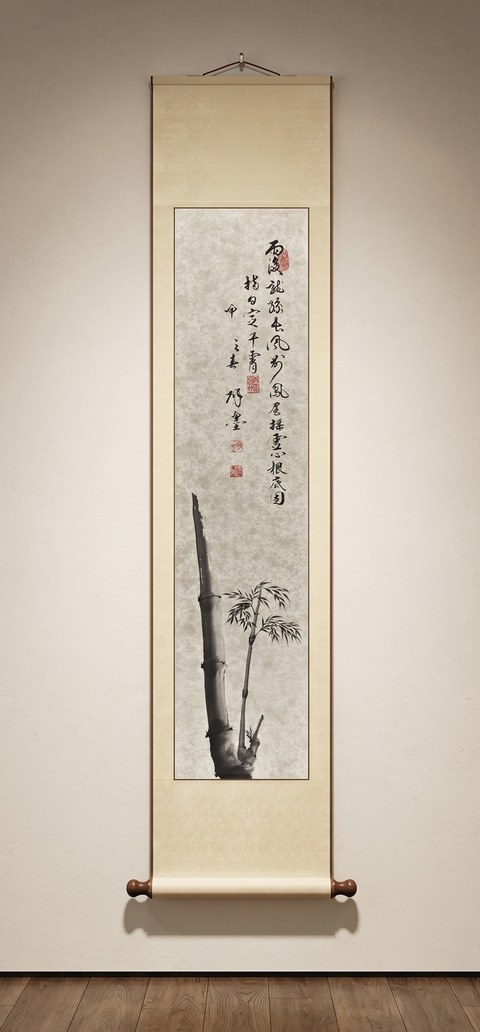 雨後龍孫長風前鳳尾搖虛心根底固
指日定干霄
之春